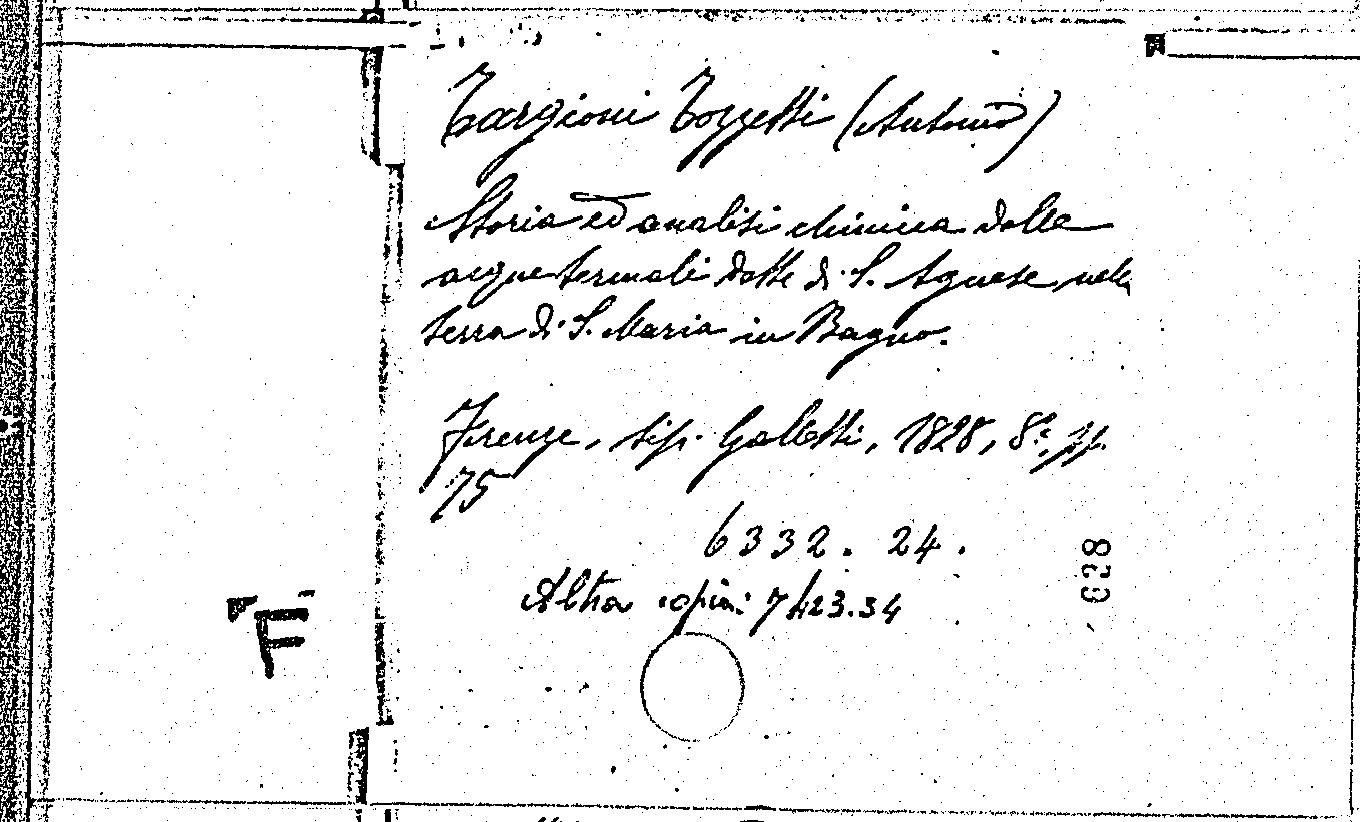 Targioni Tozzetti (Antonio)
Storia ed analisi chimica delle
acque termali dette di S. Agnese nella
terra di S. Maria in Bagno.
Firenze, tip. Galletti, 1828, 8º, pp.
75
6332. 24.
Altra copia: 7423.34
028
F